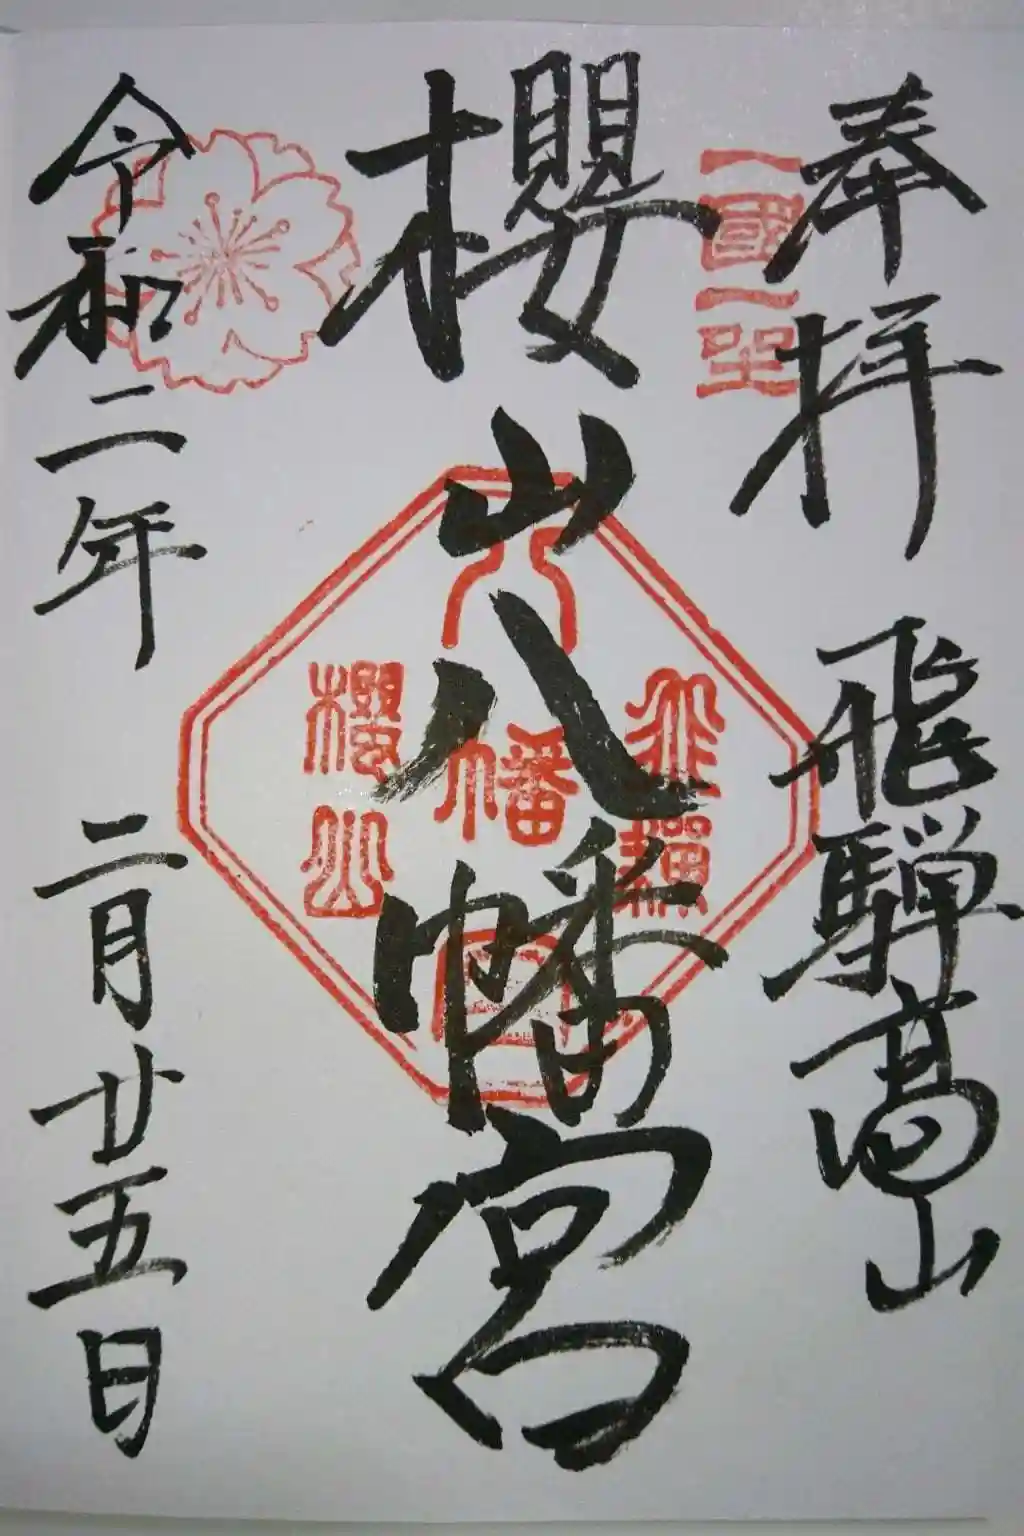 奉拝 飛騨高山
一國一社
櫻山八幡宮
飛騨
八幡宮
櫻山
令和二年 二月廿五日